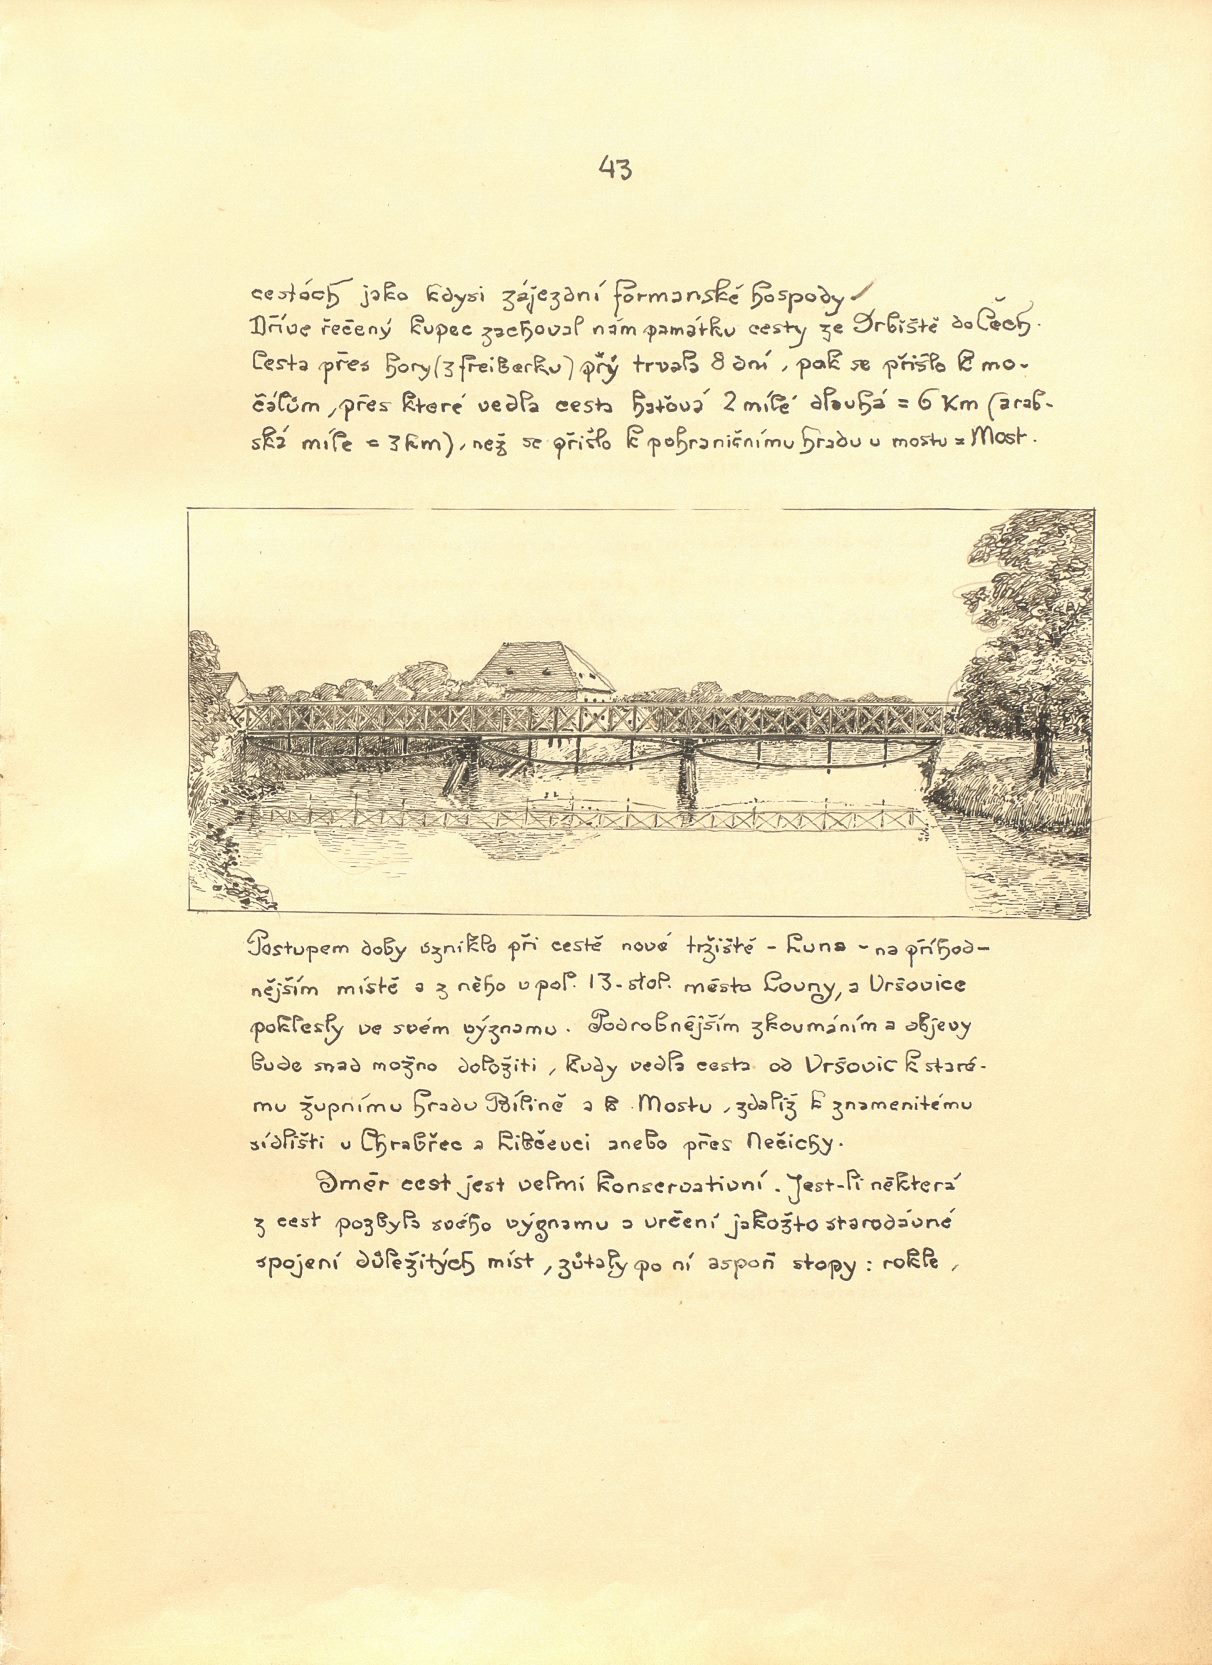 43
cestách jako kdysi zájezdní formanské hospody
Dříve řečený kupec zachoval nám památku cesty ze Srbiště do Čech.
Cesta přes hory (z freiberku) prý trvala 8 dní, pak se přišlo k mo-
čálům, přes které vedla cesta haťová 2 míle dlouhá = 6 Km (arab-
ská míle = 3 km), než se přišlo k pohraničnímu hradu u mostu = Most.
Postupem doby vzniklo při cestě nové tržiště - Luna - na příhod-
nějším místě a z něho v pol. 13. stol. město Louny, a Vršovice
poklesly ve svém významu. Podrobnějším zkoumáním a objevy
bude snad možno doložiti, kudy vedla cesta od Vršovic k staré-
mu župnímu hradu Bílině a k Mostu, zdaliž k znamenitému
sídlišti u Chrabřec a Libčevsi anebo přes Nečichy.
Směr cest jest velmi konservativní. Jest-li některá
z cest pozbyla svého významu a určení jakožto starodávné
spojení důležitých míst, zůtaly po ní aspoň stopy: rokle,